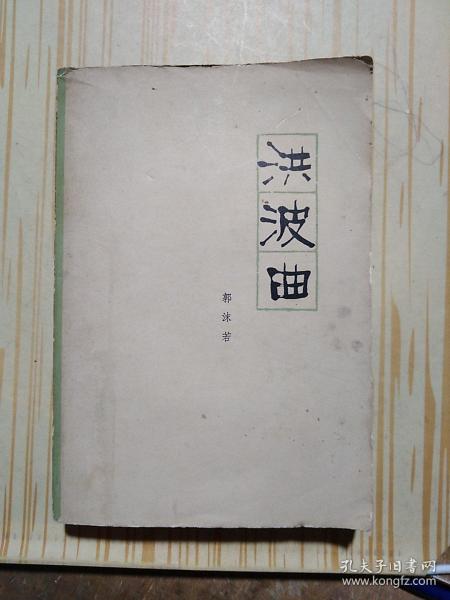 洪波曲
郭沫若
孔夫子旧书网
www.kongfz.com